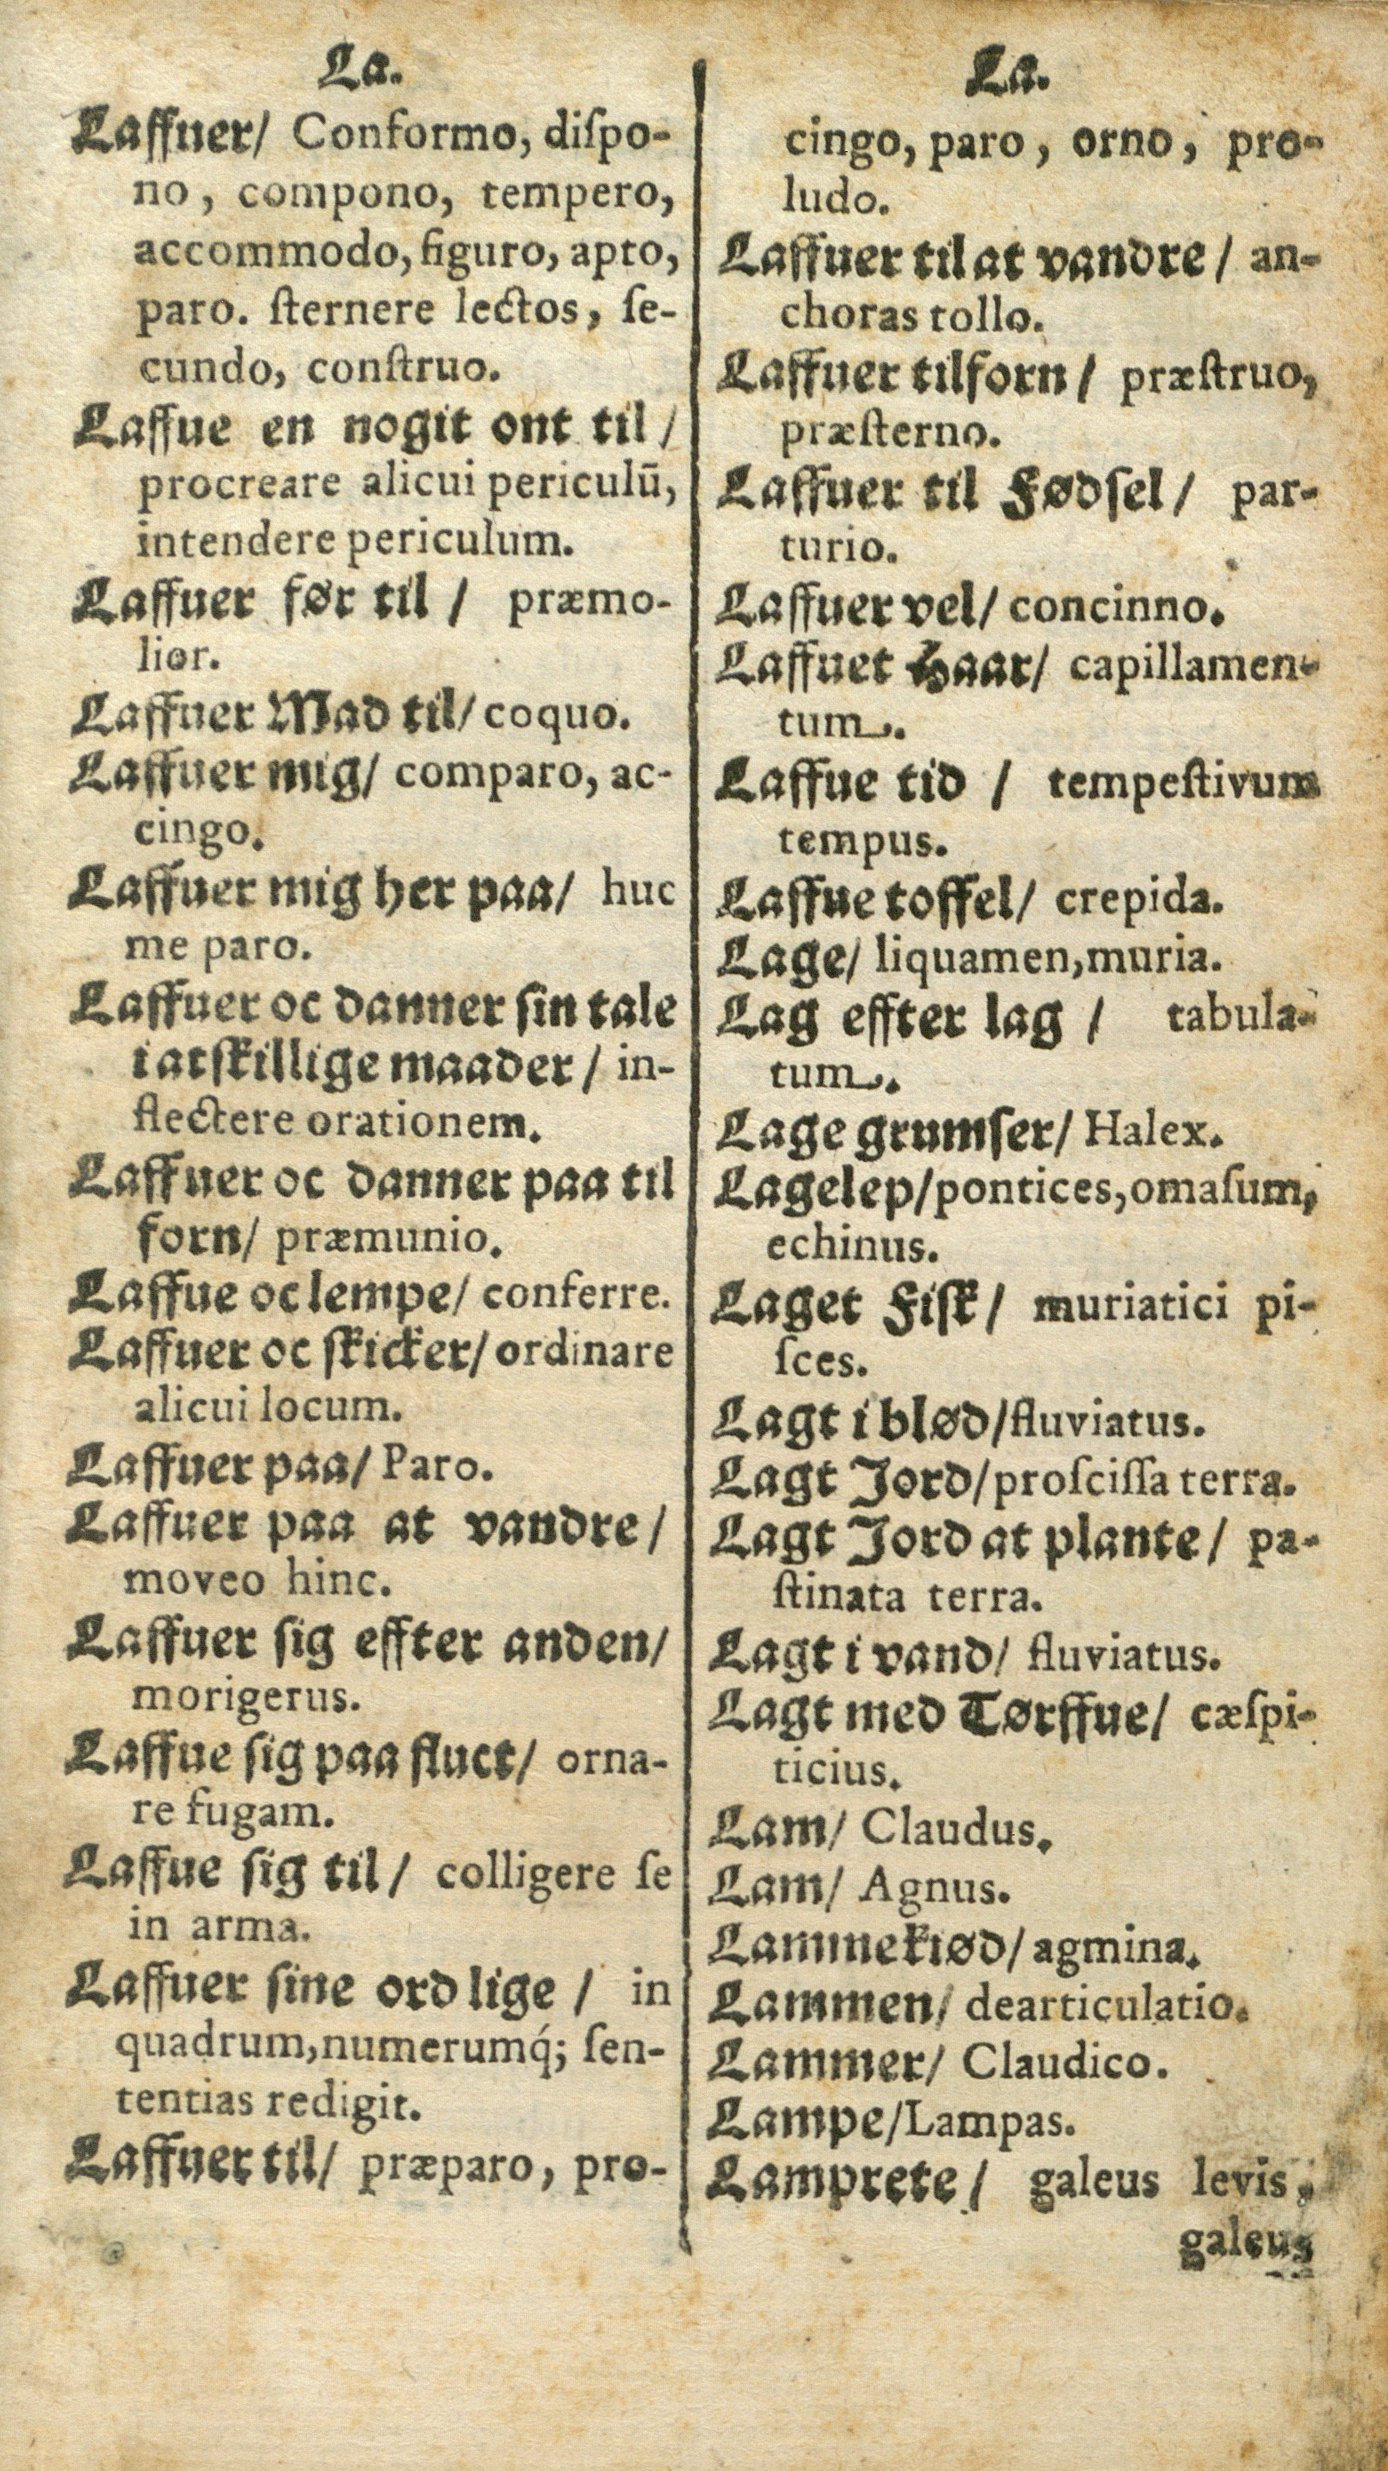 La.
Laffuer/ Conformo, diſpo-
no, compono, tempero,
accommodo, figuro, apto,
paro. ſternere lectos, ſe-
cundo, conſtruo.
Laffue en nogit ont til/
procreare alicui periculū,
intendere periculum.
Laffuer før til/ præmo-
lior.
Laffuer Mad til/ coquo.
Laffuer mig/ comparo, ac-
cingo.
Laffuer mig her paa/ huc
me paro.
Laffuer oc danner ſin tale
i atſkillige maader/ in-
flectere orationem.
Laffuer oc danner paa til
forn/ præmunio.
Laffue oc lempe/ conferre.
Laffuer oc ſkicker/ ordinare
alicui locum.
Laffuer paa/ Paro.
Laffuer paa at vandre/
moveo hinc.
Laffuer ſig effter anden/
morigerus.
Laffue ſig paa fluct/ orna-
re fugam.
Laffue ſig til/ colligere ſe
in arma.
Laffuer ſine ord lige/ in
quadrum, numerumq́; ſen-
tentias redigit.
Laffuer til/ præparo, pro-
La.
cingo, paro, orno, pro-
ludo.
Laffuer til at vandre/ an-
choras tollo.
Laffuer tilforn/ præſtruo,
præſterno.
Laffuer til Fødſel/ par-
turio.
Laffuer vel/ concinno.
Laffuet Haar/ capillamen-
tum.
Laffue tid/ tempeſtivum
tempus.
Laffue toffel/ crepida.
Lage/ liquamen, muria.
Lag effter lag/ tabula-
tum.
Lage grumſer/ Halex.
Lagelep/ pontices, omaſum,
echinus.
Laget Fiſk/ muriatici pi-
ſces.
Lagt i blød/ fluviatus.
Lagt Jord/ proſciſſa terra.
Lagt Jord at plante/ pa-
ſtinata terra.
Lagt i vand/ fluviatus.
Lagt med Tørffue/ cæſpi-
ticius.
Lam/ Claudus.
Lam/ Agnus.
Lammekiød/ agmina.
Lammen/ dearticulatio.
Lammer/ Claudico.
Lampe/ Lampas.
Lamprete/ galeus levis,
galeus